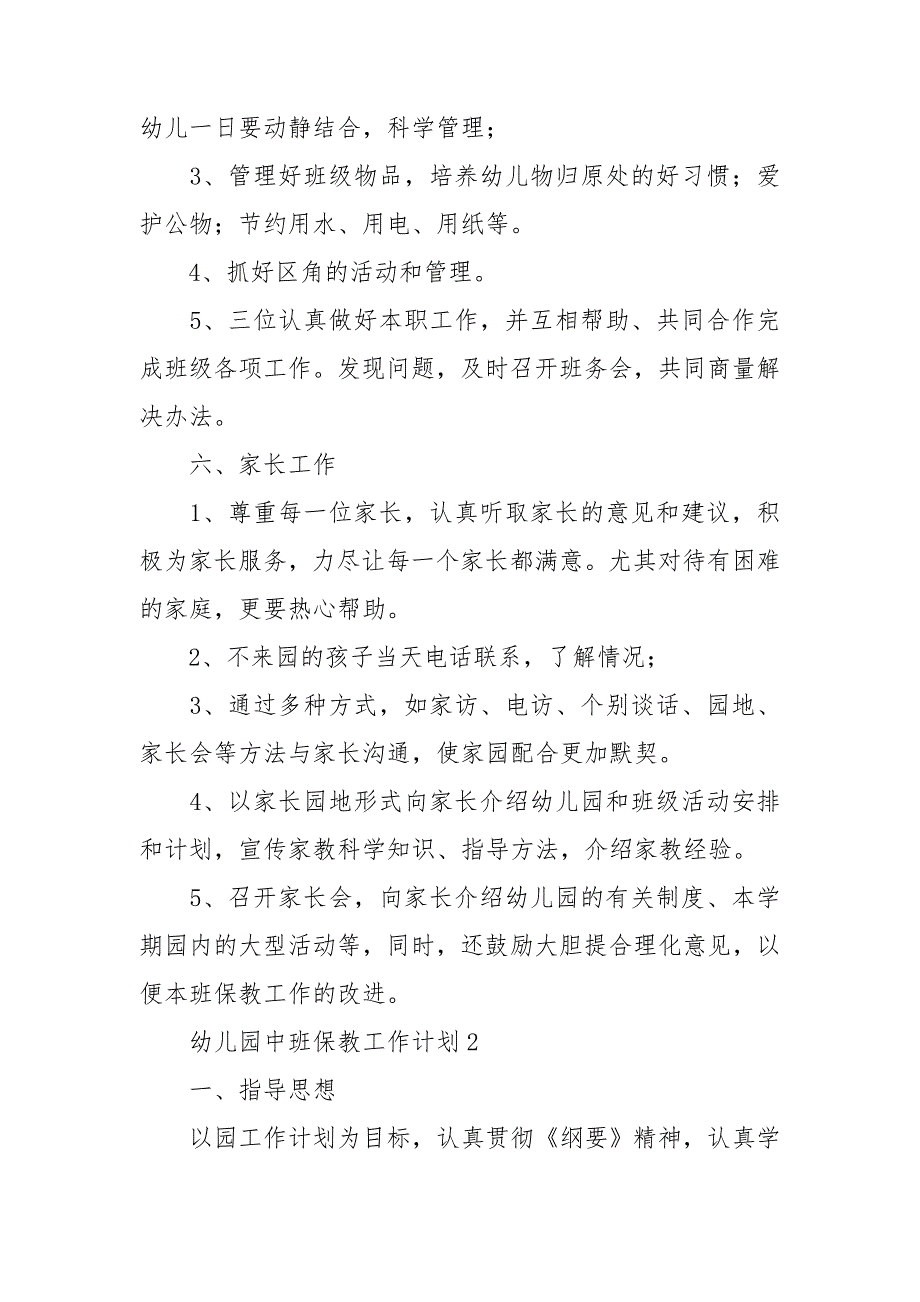 幼儿一日要动静结合，科学管理；
3、管理好班级物品，培养幼儿物归原处的好习惯；爱
护公物；节约用水、用电、用纸等。
4、抓好区角的活动和管理。
5、三位认真做好本职工作，并互相帮助、共同合作完
成班级各项工作。发现问题，及时召开班务会，共同商量解
决办法。
六、家长工作
1、尊重每一位家长，认真听取家长的意见和建议，积
极为家长服务，力尽让每一个家长都满意。尤其对待有困难
的家庭，更要热心帮助。
2、不来园的孩子当天电话联系，了解情况；
3、通过多种方式，如家访、电访、个别谈话、园地、
家长会等方法与家长沟通，使家园配合更加默契。
4、以家长园地形式向家长介绍幼儿园和班级活动安排
和计划，宣传家教科学知识、指导方法，介绍家教经验。
5、召开家长会，向家长介绍幼儿园的有关制度、本学
期园内的大型活动等，同时，还鼓励大胆提合理化意见，以
便本班保教工作的改进。
幼儿园中班保教工作计划2
一、指导思想
以园工作计划为目标，认真贯彻《纲要》精神，认真学